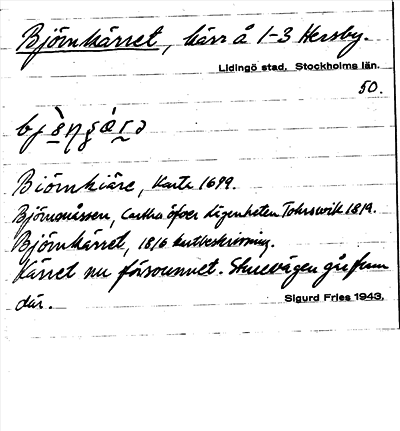 Björnkärret, kärr å 1-3 Hersby.
Lidingö stad. Stockholms län.
50.
Biörnkiäre, Karta 1699.
Björnmåssen, Cartha öfver Lägenheten Torswik 1819.
Björnkärret, 1816 kartbeskrivning.
Kärret nu försvunnet. Skuruvägen går fram
där.
Sigurd Fries 1943.